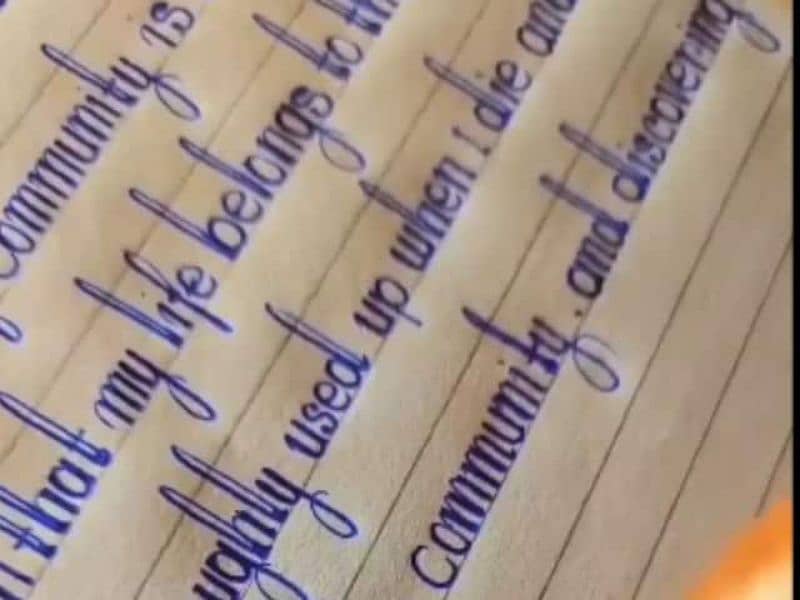 community is
that my life belongs to
ughly used up when I die and
Community. and discovering